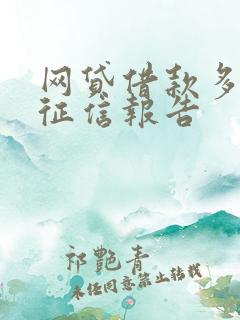 网贷借款多
征信報告
祁艷青
未经同意禁止转载